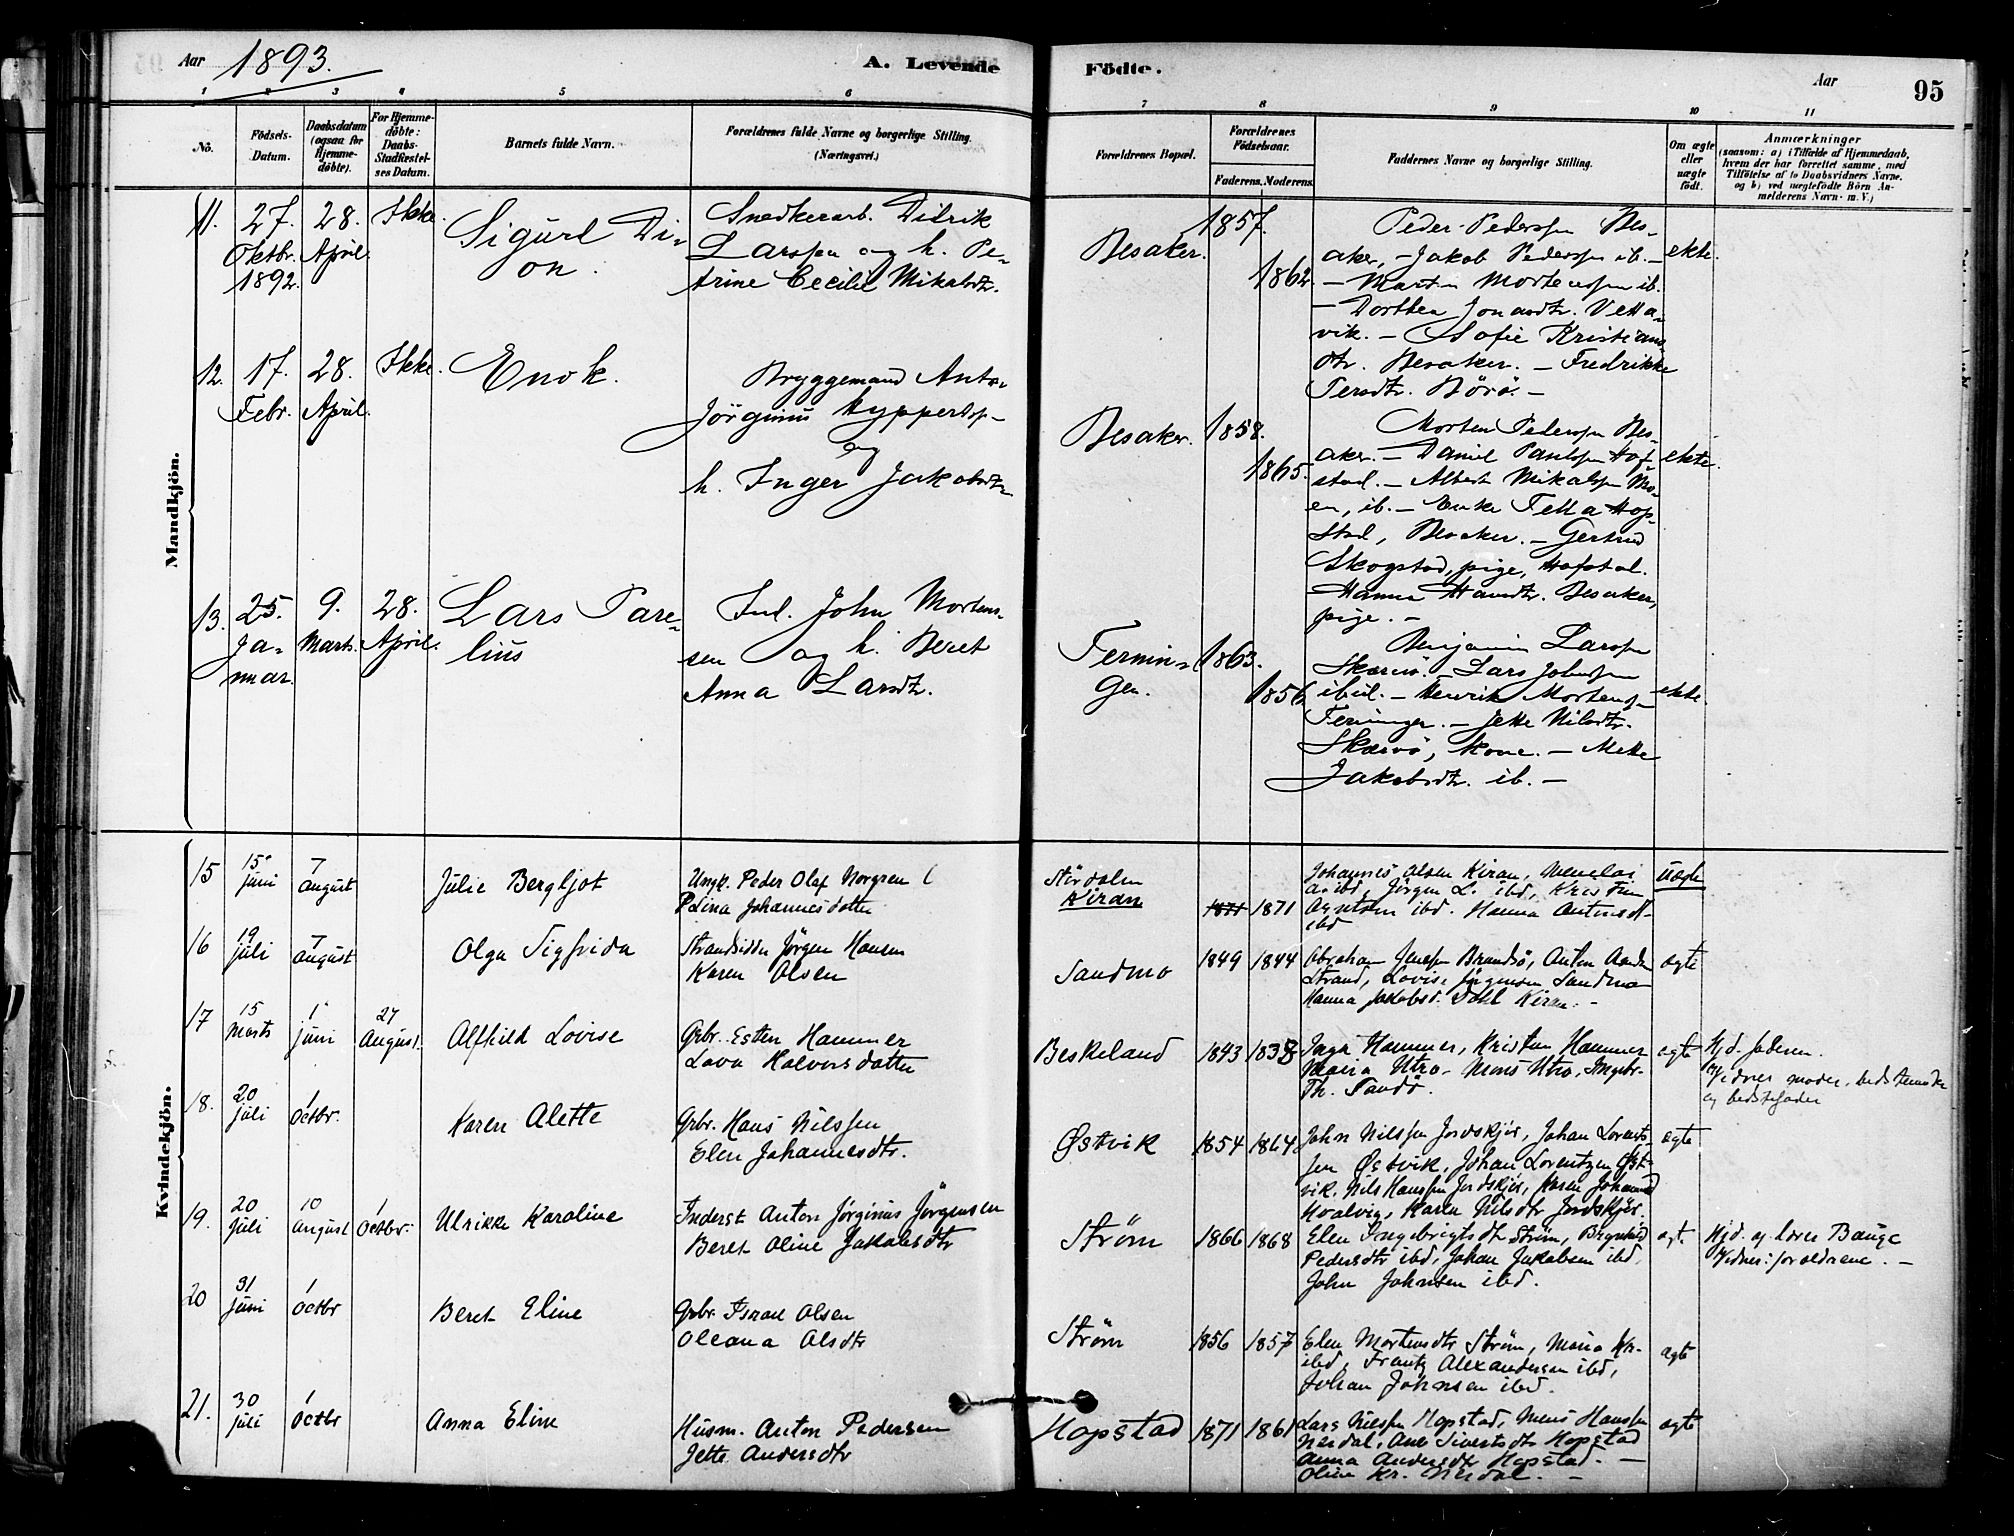 Aar 1893.
A. Levende Födte.
Aar 95
1 2 3 4 5 6 7 8 9 10 11
No.
Födsels-Datum.
Daabsdatum (ogsaa for Hjemme-döbte).
For Hjemme-döbte: Daabs-Stadfæstel-ses Datum.
Barnets fulde Navn.
Forældrenes fulde Navne og borgerlige Stilling. (Næringsvei.)
Forældrenes Bopæl.
Forældrenes Födselsaar.
Faderens. Moderens.
Faddernes Navne og borgerlige Stilling.
Om ægte eller uægte födt.
Anmærkninger
(saasom: a) i Tilfælde af Hjemmedaab,
hvem der har forrettet samme, med
Tilföielse af to Daabsvidners Navne.
og b) ved uægtefödte Börn An-
melderens Navn m.V.)
Mandkjön.
11. 27. Oktbr. 1892. 28. April. Ikke.
Sigurd Di-
on.
Snedkerarb. Didrik
Larssen og h. Pe-
trine Cecilie Mikalsdtr.
Besaker. 1857. 1862.
Peder Pederssen Bes-
aker, - Jakob Pederssen ib. -
- Martin Mortenssen ib.
- Dorthea Jonasdtr. Vetta-
vik. - Sofie Kristians-
dtr. Besaker. - Fredrikke
Persdtr. Börö. -
ekte.
12. 17. Febr. 28. April. Ikke.
Enok.
Bryggemand Anton
Jörginus
og
h. Inger Jakobsdtr.
Besaker. 1858. 1865.
Morten Pederssen Bes-
aker. - Daniel Paulssen Hof-
stad. - Albert Mikalssen Mo-
en, ib. - Enke Hop-
stad, Besaker. - Gertrud
Skogstad, pige, Hofstad.
Hanna Hansdtr. Besaker,
pige. -
ekte.
13. 25. Januar. 9. Marts. 28. April.
Lars Pare-
lius
Ind. John Morten-
sen og h. Beret
Anna Larsdtr.
Termin-
gen.
1863. 1856
Benjamin Larssen
Skarvö. - Lars Johnssen
ibid. - Henrik Mortenss-
Terningen. - Jette Nilsdtr.
Skarvö, kone. - Mette
Jakobsdtr. ib. -
ekte.
Kvindekjön.
15 15 juni 7 august
Julie Bergljot
Ungk. Peder Olaf Norgren
Pelina Johannesdotter
Stördalen
Kiran
1871 1871
Johannes Olsen Kiran,
ibd, Jörgen L. ibd, Kristian
Arntsen ibd. Hanna Antonsd-
ibd
uægte
16 19 juli 7 august
Olga Sigfrida
Strandsidder Jørgen Hansen
Karen Olsen
Sandmo 1849 1844
Abraham Jenssen Brandsö, Anton
Strand, Lovise Jørgensen Sandmo
Hanna Jakobsd. Dahl Kiran. -
ægte
17 15 marts 1 juni 27 August.
Alfhild Lovise
Grbr. Esten Hammer
Lava Halvorsdotter
Beskeland 1843 1838
Inga Hammer, Kristen Hammer
Maria Utro - Mons Utro, Ingebr.
Th. Sandö.
ægte
Hjd. faderen.
Vidner moder, bedstemoder
og bedstefader
18. 20 juli 1 Octbr.
Karen Alette
Grbr. Hans Nilssen
Elen Johannesdtr.
Østvik 1854 1864
John Nilssen Jordskjær, Johan Lorents-
sen Østvik, Johan Lorentzen Øst-
vik, Nils Hanssen Jordskjær, Karen Johansd
Hvalvig, Karen Nilsdtr Jordskjær.
ægte
19. 20 juli 10 august 1 Octbr.
Ulrikke Karoline
Inderst Anton Jørginus Jörgensen
Beret Oline Jakobsdtr
Strøm 1866 1868
Elen Ingebrigtsdtr Strøm, Bergitha
Pedersdtr ibd, Johan Jakobsen ibd,
John Johnsen ibd.
ægt.
Hjd. af lærer Bauge
Vidner: forældrene. -
20 31 juni 1 Octbr
Beret Eline
Grbr Israel Olsen
Oleana Olsdtr
Strøm 1856 1857
Elen Mortensdtr Strøm, Maria Kr-
ibd, Frantz Alexandersen ibd,
Johan Johnsen ibd.
ægte
21. 30 juli 1 Octbr
Anna Eline
Husm. Anton Pedersen
Jette Andersdtr
Hopstad 1871 1861
Lars Nilssen Hopstad, Mens Hanssen
Nerdal, Ane Sivertsdtr Hopstad
Anna Andersdtr Hopstad. -
Oline Kr. Nerdal. -
ægte